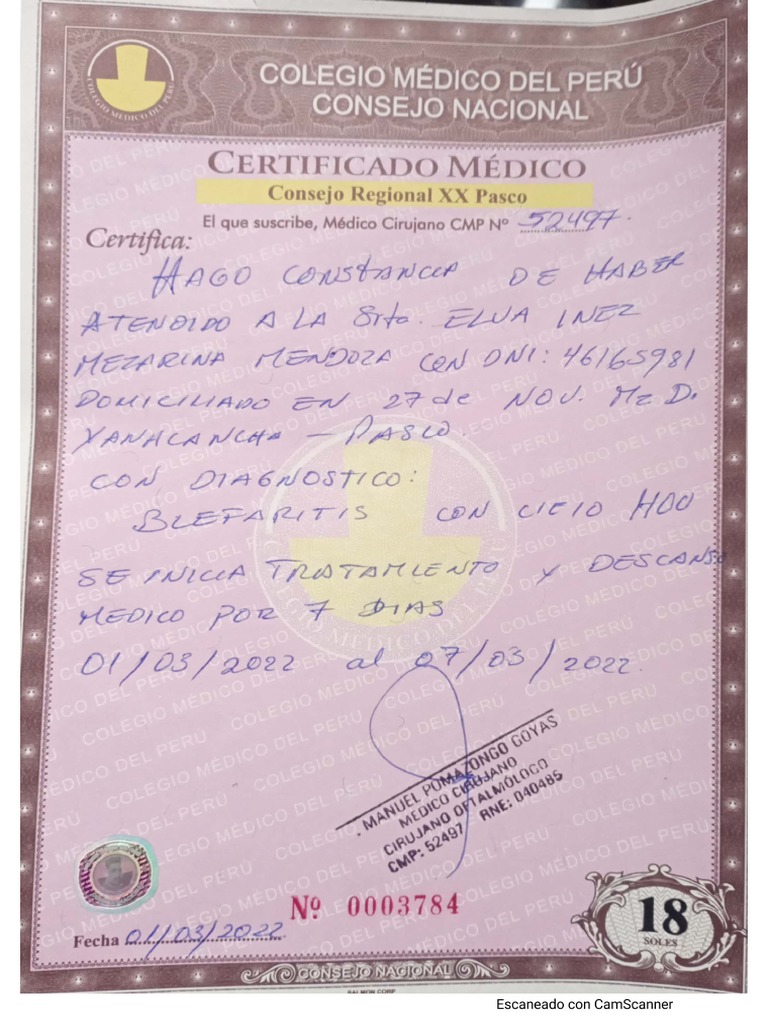 COLEGIO MÉDICO DEL PERÚ
CONSEJO NACIONAL
COLEGIO MEDICO DEL PERU
CERTIFICADO MÉDICO
Consejo Regional XX Pasco
El que suscribe, Médico Cirujano CMP Nº 52497.
Certifica:
HAGO CONSTANCIA DE HABER
ATENDIDO A LA Srta. ELVA INEZ
MEZARINA MENDOZA CON DNI: 46165981
DOMICILIADO EN 27 de NOV. Mz D.
YANACANCHA – PASCO.
CON DIAGNOSTICO:
BLEFARITIS CON CIE10 H00
SE INICIA TRATAMIENTO Y DESCANSO
MEDICO POR 7 DIAS
01/03/2022 al 07/03/2022.
MANUEL POMAZONGO GOYAS
MEDICO CIRUJANO
CIRUJANO OFTALMÓLOGO
CMP: 52497 RNE: 040485
Nº 0003784
18
SOLES
Fecha 01/03/2022
CONSEJO NACIONAL
SALMON CORP
Escaneado con CamScanner